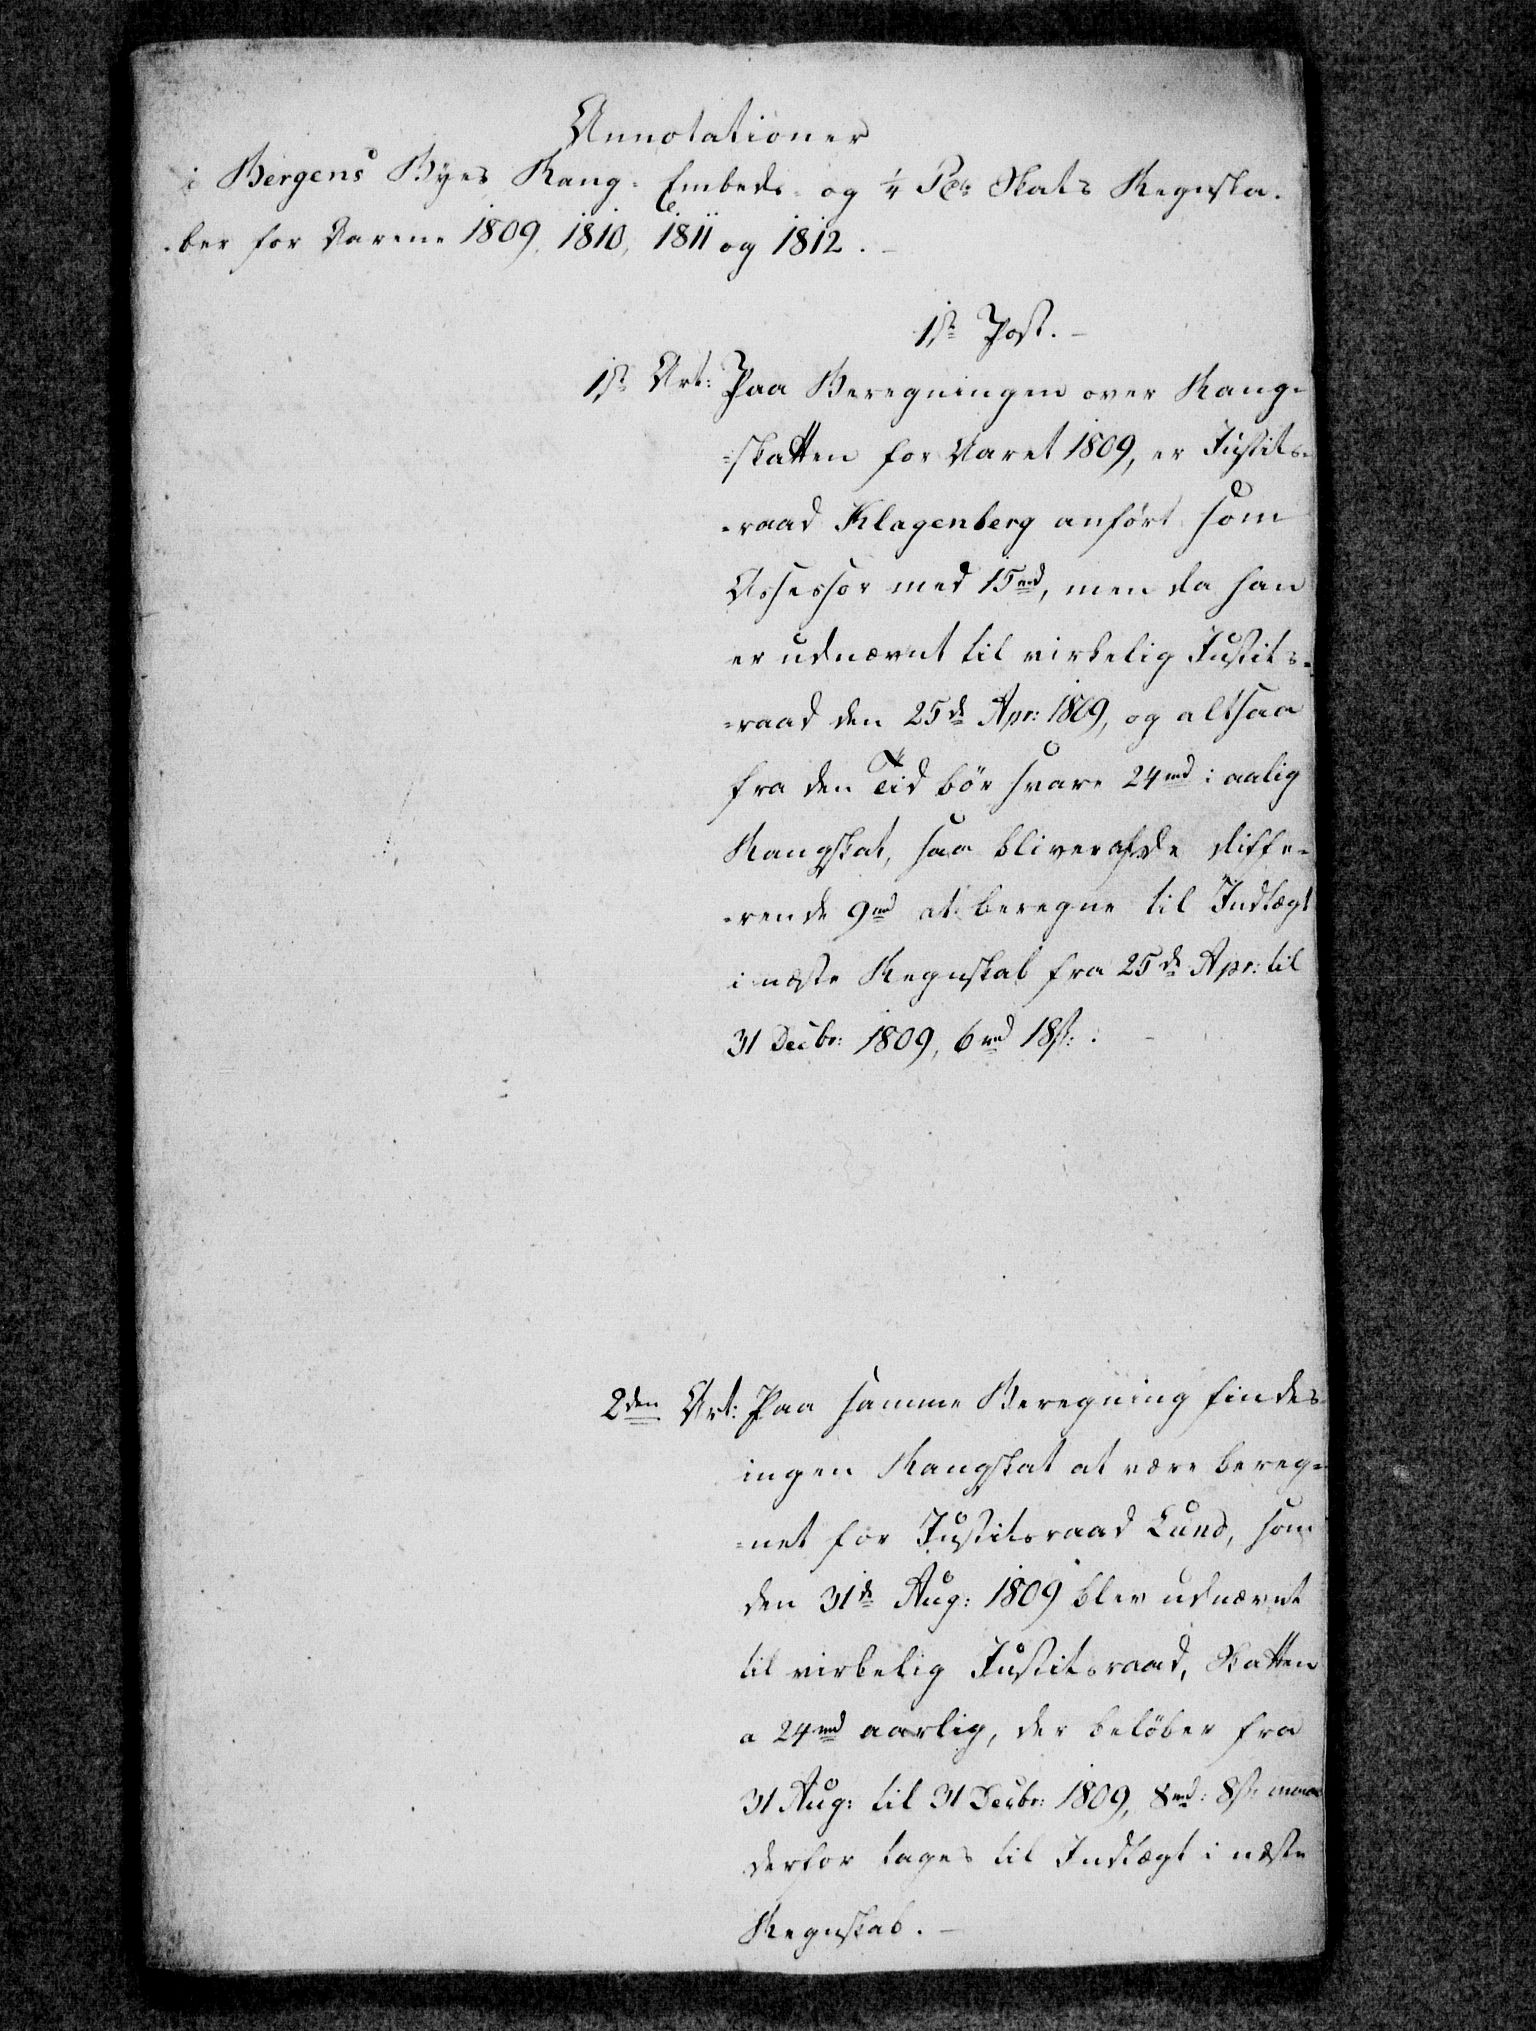 Annotationer
i Bergens Byes Rang- Embeds- og ¼ Pct: Skats Regnska-
-ber for Aarene 1809, 1810, 1811 og 1812.
1ste Post.
1ste Art: Paa Beregningen over Rang-
-skatten for Aaret 1809, er Justits-
-raad Klagenberg anført som
Assessor med 15rd, men da han
er udnævnt til virkelig Justits-
-raad den 25de Apr: 1809, og altsaa
fra den Tid bör svare 24rd i aalig
Rangskat, saa bliver de diffe-
-rende 9rd at beregne til Indtægt
i næste Regnskab fra 25de Apr: til
31 Decbr: 1809, 6rd 18s:
2den Art: Paa samme Beregning findes
ingen Rangskat at være bereg-
-net for Justitsraad Lund, som
den 31de Aug: 1809 blev udnævnt
til virkelig Justitsraad, Skatten
a 24rd aarlig, der belöber fra
31 Aug: til 31 Decbr: 1809, 8rd: 8s: maae
derfor tages til Indtægt i næste
Regnskab.